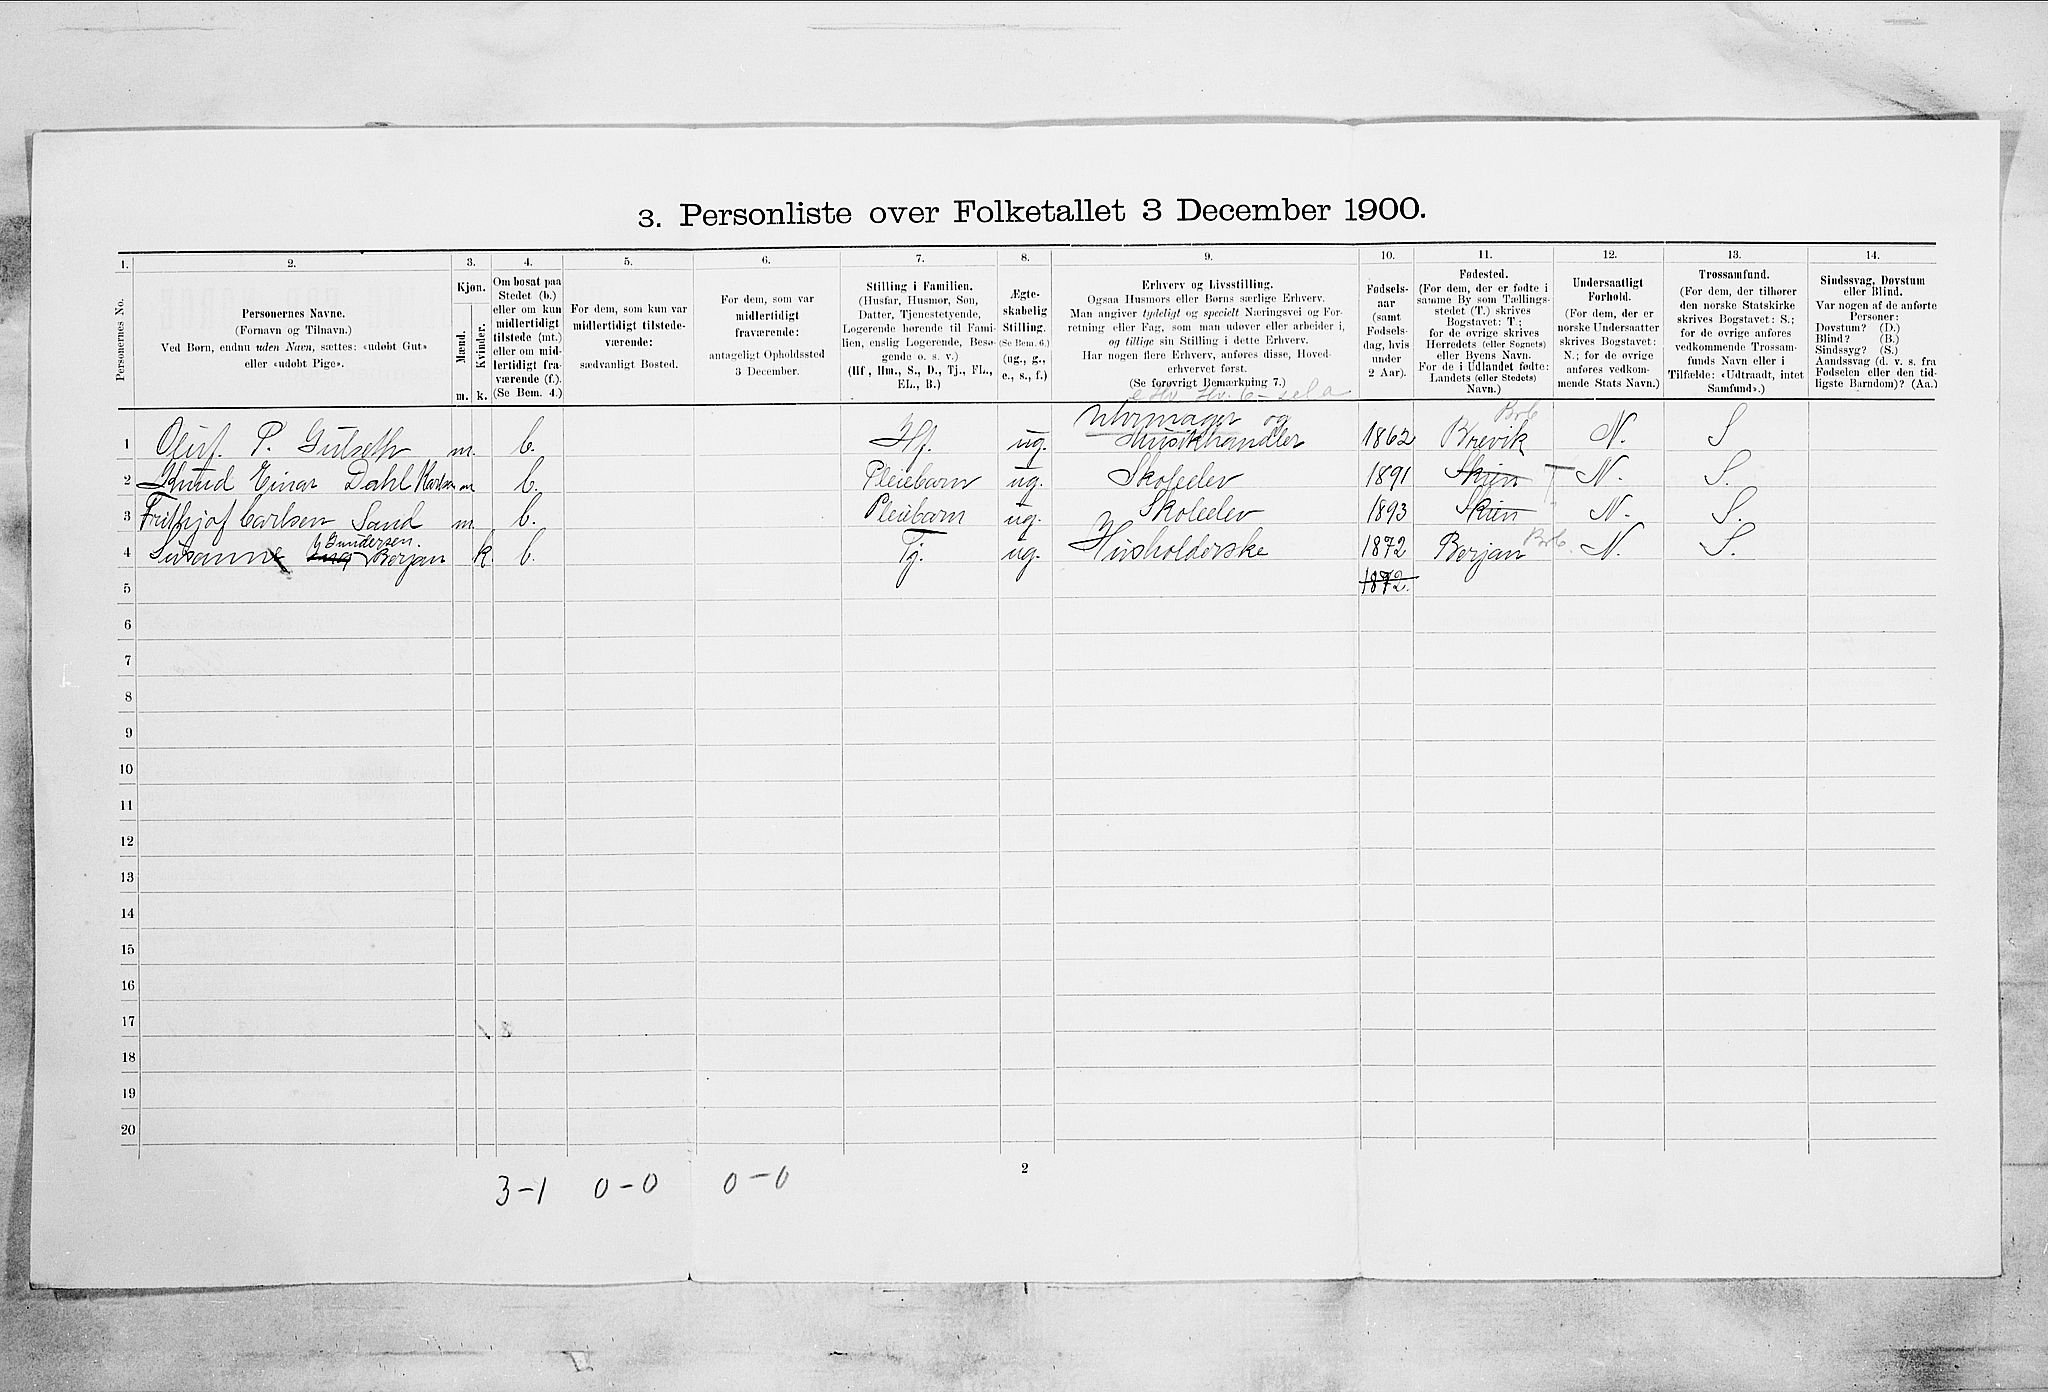 3. Personliste over Folketallet 3 December 1900.
1. 2. 3. 4. 5. 6. 7. 8. 9. 10. 11. 12. 13. 14.
Personernes No.
Personernes Navne.
(Fornavn og Tilnavn.)
Ved Børn, endnu uden Navn, sættes: «udøbt Gut»
eller «udøbt Pige».
Kjøn.
Mænd.
Kvinder.
m. k.
Om bosat paa
Stedet (b.)
eller om kun
midlertidigt
tilstede (mt.)
eller om mid-
lertidigt fra-
værende (f.).
(Se Bem. 4.)
For dem, som kun var
midlertidigt tilstede-
værende:
sædvanligt Bosted.
For dem, som var
midlertidigt
fraværende:
antageligt Opholdssted
3 December.
Stilling i Familien.
(Husfar, Husmor, Søn,
Datter, Tjenestetyende,
Logerende hørende til Fami-
lien, enslig Logerende, Besø-
gende o. s. v.)
(Hf, Hm., S., D., Tj., FL.,
EL., B.)
Ægte-
skabelig
Stilling.
(Se Bem. 6.)
(ug., g.,
e., s., f.)
Erhverv og Livsstilling.
Ogsaa Husmors eller Børns særlige Erhverv.
Man angiver tydeligt og specielt Næringsvei og For-
retning eller Fag, som man udøver eller arbeider i,
og tillige sin Stilling i dette Erhverv.
Har nogen flere Erhverv, anføres disse, Hoved-
erhvervet først.
(Se forøvrigt Bemærkning 7.)
Fødsels-
aar
(samt
Fødsels-
dag, hvis
under
2 Aar).
Fødested.
(For dem, der er fødte i
samme By som Tællings-
stedet (T.) skrives
Bogstavet: T.;
for de øvrige skrives
Herredets (eller Sognets)
eller Byens Navn.
For de i Udlandet fødte:
Landets (eller Stedets)
Navn.)
Undersaatligt
Forhold.
(For dem, der er
norske Undersaatter
skrives Bogstavet:
N.; for de øvrige
anføres vedkom-
mende Stats Navn.)
Trossamfund.
(For dem, der tilhører
den norske Statskirke
skrives Bogstavet: S.;
for de øvrige anføres
vedkommende Trossam-
funds Navn eller i
Tilfælde: «Udtraadt, intet
Samfund».)
Sindssvag, Døvstum
eller Blind.
Var nogen af de anførte
Personer:
Døvstum? (D.)
Blind? (B.)
Sindssyg? (S.)
Aandssvag (d. v. s. fra
Fødselen eller den tid-
ligste Barndom)? (Aa.)
Uhrmager og Brb
1 P. Gulseth m. b. Hf. ug. Musikhandler 1862 Brevik N. S
2 Knud Einar Dahl Karlsen m b. Pleiebarn ug. Skoleelev 1891 Skien T N. S.
3 Frithjof Carlsen Sand m. b. Pleiebarn ug. Skoleelev 1893 Skien N. S.
Gundersen.
4 Susanne Berjan k. b. Tj. ug. Husholderske 1872 Berjan Brb. N. S.
5 1872.
6
7
8
9
10
11
12
13
14
15
16
17
18
19
20
3-1 0-0 0-0
2